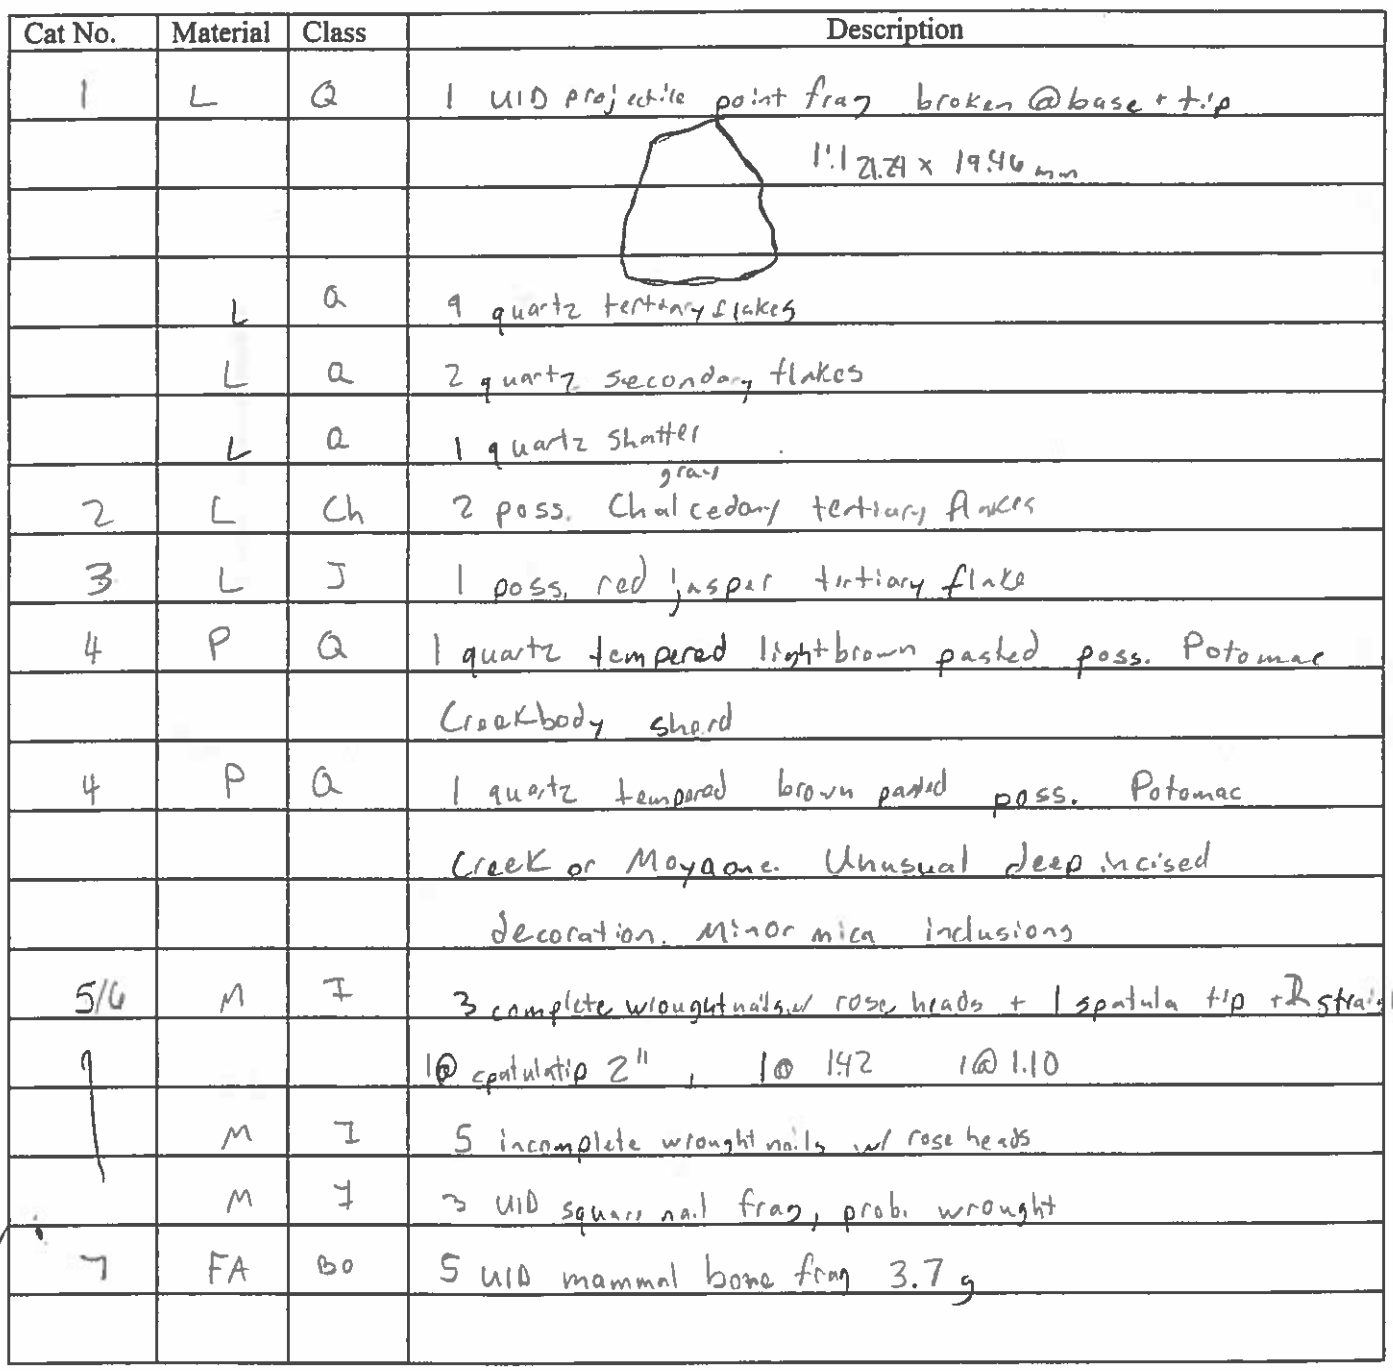 Cat No. Material Class Description
1 L Q 1 UID projectile point frag broken @ base + tip
1:1 21.29 x 19.46 mm
L Q 9 quartz tertiary flakes
L Q 2 quartz secondary flakes
L Q 1 quartz shatter
gray
2 L Ch 2 poss. Chalcedony tertiary flakes
3 L J 1 poss. red jasper tertiary flake
4 P Q 1 quartz tempered light brown pasted poss. Potomac
Creek body sherd
4 P Q 1 quartz tempered brown pasted poss. Potomac
Creek or Moyaone. Unusual deep incised
decoration. Minor mica inclusions
5/6 M I 3 complete wrought nails w/ rose heads + 1 spatula tip + 2
1@ spatula tip 2", 1@ 1.42 1@ 1.10
M I 5 incomplete wrought nails w/ rose heads
M I 3 UID square nail frag, prob. wrought
7 FA BO 5 UID mammal bone frag 3.7 g